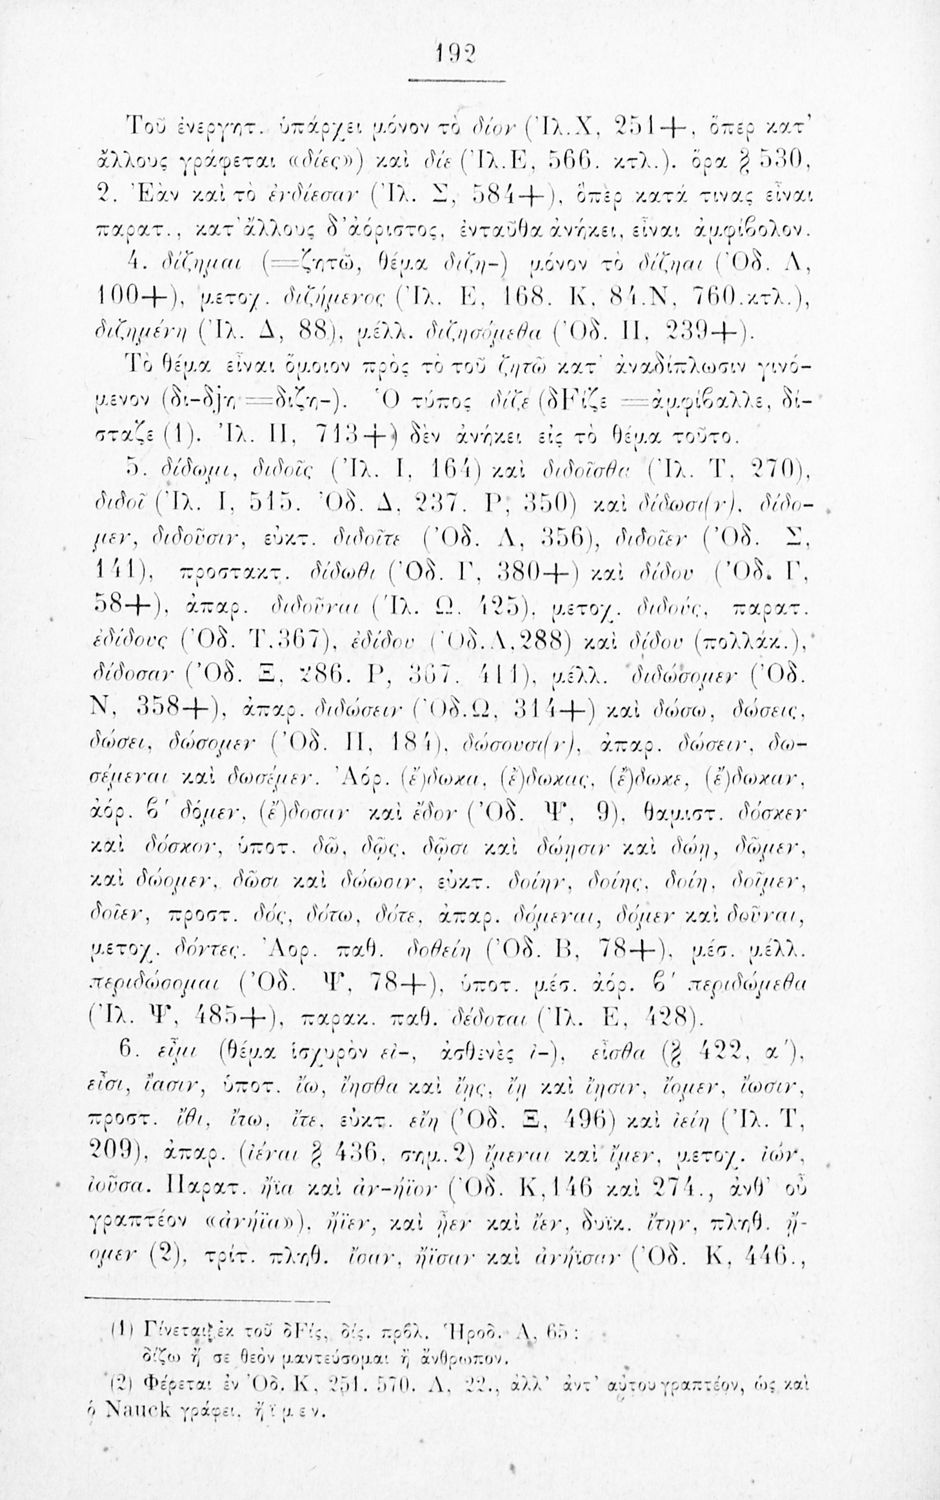 192
Τοῦ ἐνεργητ. ὑπάρχει μόνον τὸ δίον (Ἰλ.Χ, 251+, ὅπερ κατ’
ἄλλους γράφεται «δίες») καὶ δίε (Ἰλ.Ε, 566. κτλ.). ὅρα § 530,
2. Ἐὰν καὶ τὸ ἐνδίεσαν (Ἰλ. Σ, 584+), ὅπερ κατά τινας εἶναι
παρατ., κατ’ἄλλους δ’ἀόριστος, ἐνταῦθα ἀνήκει, εἶναι ἀμφίβολον.
4. δίζημαι (=ζητῶ, θέμα διζη-) μόνον τὸ δίζηαι (Ὀδ. Λ,
100+), μετοχ. διζήμενος (Ἰλ. Ε, 168. Κ, 84.Ν, 760.κτλ.),
διζημένη (Ἰλ. Δ, 88), μέλλ. διζησόμεθα (Ὀδ. Π, 239+).
Τὸ θέμα εἶναι ὅμοιον πρὸς τὸ τοῦ ζητῶ κατ’ ἀναδίπλωσιν γινό-
μενον (δι-δjη=διζη-). Ὁ τύπος δίζε (δϜίζε =ἀμφίβαλλε, δί-
σταζε (1). Ἰλ. Π, 713+) δὲν ἀνήκει εἰς τὸ θέμα τοῦτο.
5. δίδωμι, διδοῖς (Ἰλ. Ι, 164) καὶ διδοῖσθα (Ἰλ. Τ, 270),
διδοῖ (Ἰλ. Ι, 515. Ὀδ. Δ, 237. Ρ, 350) καὶ δίδωσι(ν), δίδο-
μεν, διδοῦσιν, εὐκτ. διδοῖτε (Ὀδ. Λ, 356), διδοῖεν (Ὀδ. Σ,
141), προστακτ. δίδωθι (Ὀδ. Γ, 380+) καὶ δίδου (Ὀδ. Γ,
58+), ἀπαρ. διδοῦναι (Ἰλ. Ω, 425), μετοχ. διδούς, παρατ.
ἐδίδους (Ὀδ. Τ.367), ἐδίδου (Ὀδ.Λ.288) καὶ δίδου (πολλάκ.),
δίδοσαν (Ὀδ. Ξ, 286. Ρ, 367. 411), μέλλ. διδώσομεν (Ὀδ.
Ν, 358+), ἀπαρ. διδώσειν (Ὀδ.Ω, 314+) καὶ δώσω, δώσεις,
δώσει, δώσομεν (Ὀδ. Π, 184), δώσουσι(ν), ἀπαρ. δώσειν, δω-
σέμεναι καὶ δωσέμεν. Ἀόρ. (ἔ)δωκα, (ἔ)δωκας, (ἔ)δωκε, (ἔ)δωκαν,
ἀόρ. β΄ δόμεν, (ἔ)δοσαν καὶ ἔδον (Ὀδ. Ψ, 9), θαμιστ. δόσκεν
καὶ δόσκον, ὑποτ. δῶ, δῷς, δῷσι καὶ δώῃσιν καὶ δώῃ, δῶμεν,
καὶ δώομεν, δῶσι καὶ δώωσιν, εὐκτ. δοίην, δοίης, δοίη, δοῖμεν,
δοῖεν, προστ. δός, δότω, δότε, ἀπαρ. δόμεναι, δόμεν καὶ δοῦναι,
μετοχ. δόντες. Ἀορ. παθ. δοθείη (Ὀδ. Β, 78+), μέσ. μέλλ.
περιδώσομαι (Ὀδ. Ψ, 78+), ὑποτ. μέσ. ἀόρ. β΄ περιδώμεθα
(Ἰλ. Ψ, 485+), παρακ. παθ. δέδοται (Ἰλ. Ε, 428).
6. εἶμι (θέμα ἰσχυρὸν εἰ-, ἀσθενὲς ἰ-), εἶσθα (§ 422, α΄),
εἶσι, ἴασιν, ὑποτ. ἴω, ἴησθα καὶ ἴῃς, ἴῃ καὶ ἴησιν, ἴομεν, ἴωσιν,
προστ. ἴθι, ἴτω, ἴτε, εὐκτ. εἴη (Ὀδ. Ξ, 496) καὶ ἰείη (Ἰλ. Τ,
209), ἀπαρ. (ἰέναι § 436, σημ.2) ἴμεναι καὶ ἴμεν, μετοχ. ἰών,
ἰοῦσα. Παρατ. ἤϊα καὶ ἀν-ήϊον (Ὀδ. Κ,146 καὶ 274., ἀνθ’ οὗ
γραπτέον «ἀνήϊα»), ἤϊεν, καὶ ᾖεν καὶ ἴεν, δυϊκ. ἴτην, πληθ. ᾔ-
ομεν (2), τρίτ. πληθ. ἴσαν, ἤϊσαν καὶ ἀνήϊσαν (Ὀδ. Κ, 446.,
(1) Γίνεται ἐκ τοῦ δϜίς, δίς. πρβλ. Ἡροδ. Α, 65:
δίζω ἤ σε θεὸν μαντεύσομαι ἢ ἄνθρωπον.
(2) Φέρεται ἐν Ὀδ. Κ, 251. 570. Λ, 22., ἀλλ’ ἀντ’ αὐτου γραπτέον, ὡς καὶ
ὁ Nauck γράφει, ἤϊμεν.